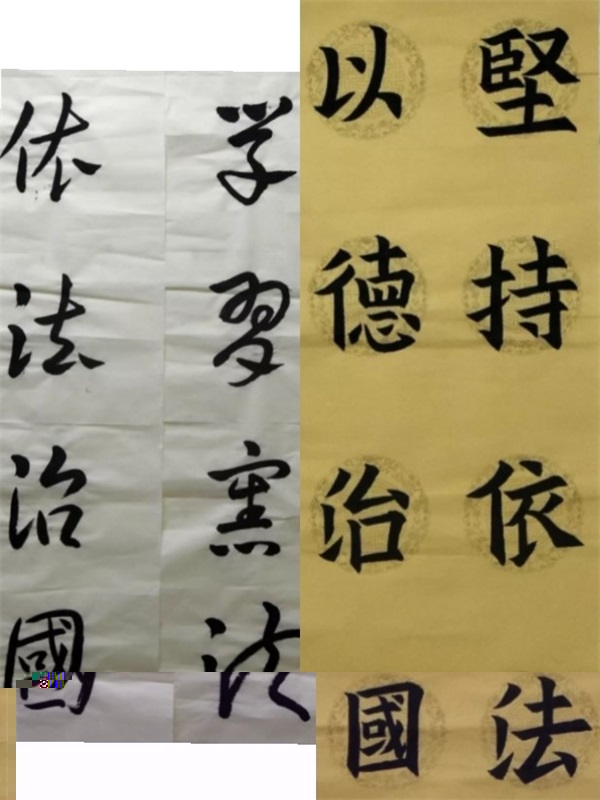 堅持依法
以德治國
学習憲法
依法治國